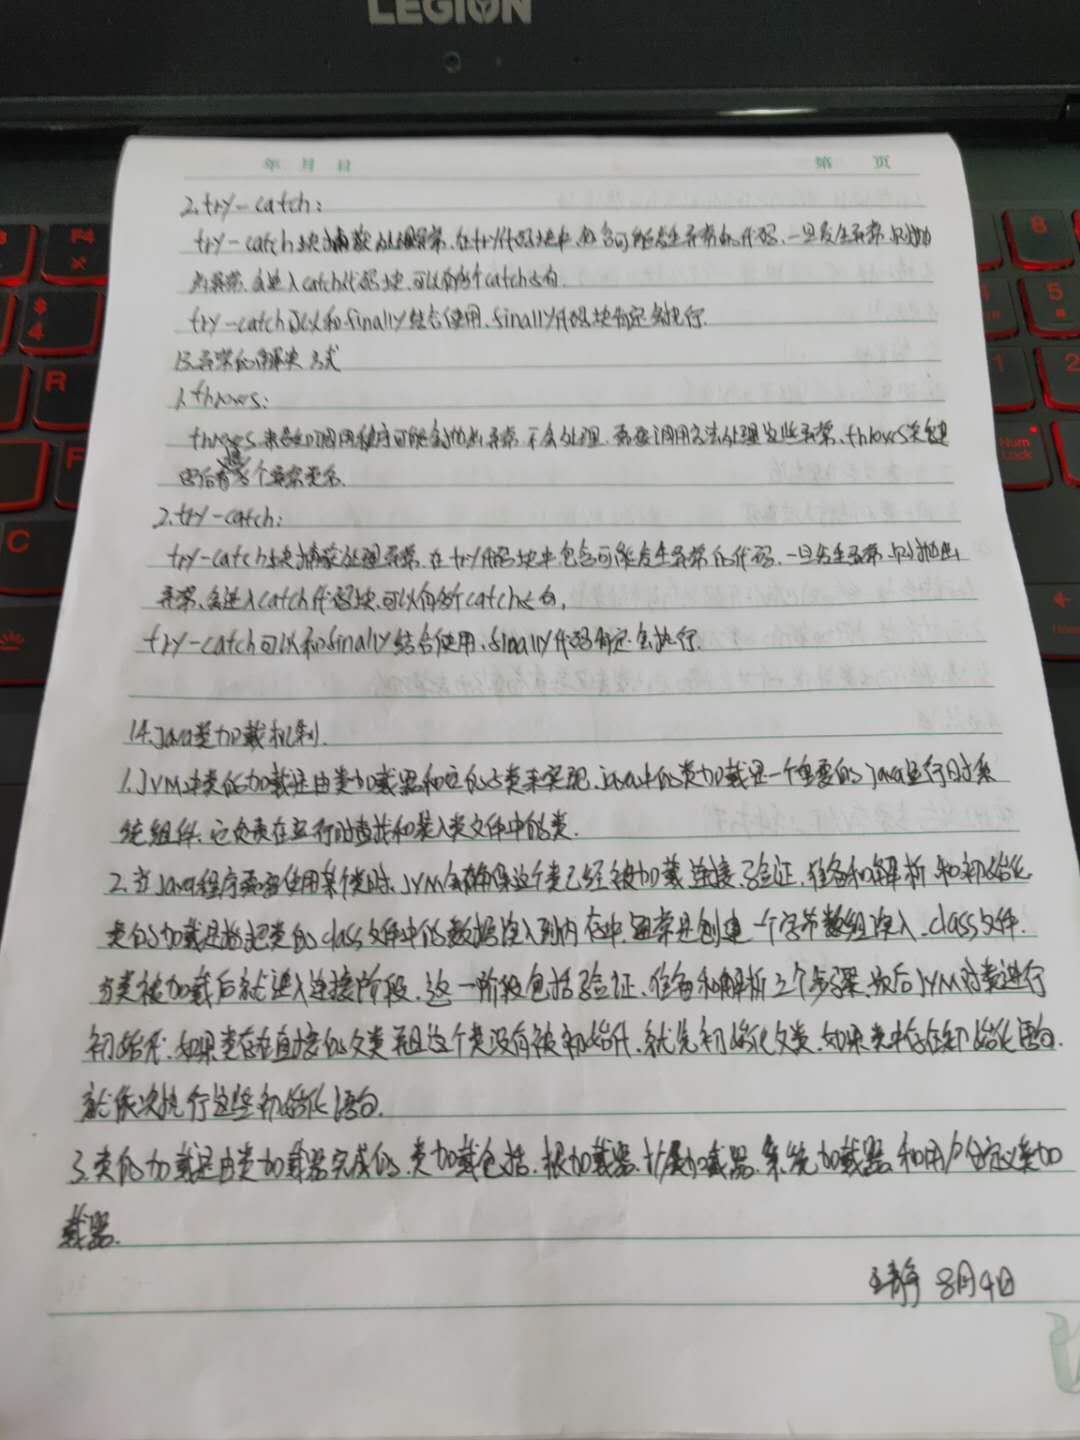 LEGION
年 月 日 第 页
2.try-catch:
try-catch块捕获处理异常,在try代码块中包含可能发生异常的代码,一旦发生异常,则抛
出异常,会进入catch代码块,可以有多个catch语句.
try-catch可以和finally结合使用,finally代码块肯定会执行.
13.异常的解决方式
1.throws:
throws 可能会抛出异常,不会处理,需要调用方法处理这些异常,throws关键
字后 个异常类名.
2.try-catch:
try-catch块捕获处理异常,在try代码块中包含可能发生异常的代码,一旦发生异常,则抛出
异常,会进入catch代码块,可以有多个catch语句,
try-catch可以和finally结合使用,finally代码肯定会执行.
14.Java类加载机制.
1.JVM中类的加载是由类加载器和它的子类来实现,java中的类加载是一个重要的Java运行时系
统组件,它负责在运行时查找和装入类文件中的类.
2.当Java程序需要使用某个类时,JVM会确保这个类已经被加载,连接,验证,准备和解析,和初始化
类的加载是指把类的class文件中的数据读入到内存中,通常是创建一个字节数组读入.class文件.
当类被加载后就进入连接阶段,这一阶段包括验证,准备和解析三个步骤,然后JVM对类进行
初始化,如果类存在直接的父类并且这个类没有被初始化,就先初始化父类,如果类中存在初始化语句,
就依次执行这些初始化语句.
3.类的加载是由类加载器完成的,类加载包括,根加载器,扩展加载器,系统加载器,和用户自定义类加
载器.
王静 8月4日
F4
$
4
R
F
C
8
5
1
2
Num
Lock